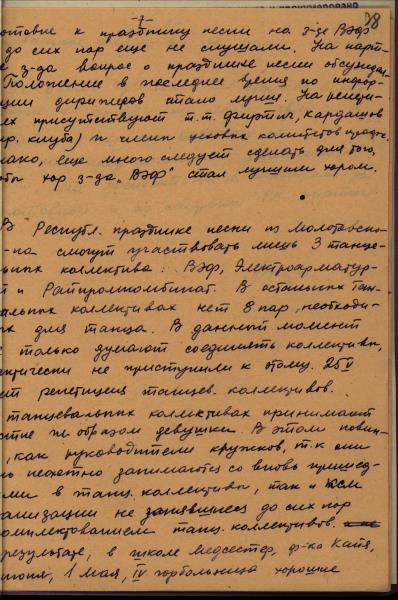 -7-
28
отовке к празднику песни на з-де ВЭФ
до сих пор еще не слушали. На парт-
е з-да вопрос о празднике песни обсуждали.
Положение в последнее время по инфор-
ции дирижеров стало лучше. На репети-
ях присутствуют т.т. Фиртыч, Кардашов
р. клуба) и члены цеховых комитетов
нако, еще много следует сделать для того,
обы хор з-да „ВЭФ" стал лучшим хором.
В Республ. празднике песни из Молотовско-
-на смогут участвовать лишь 3 танце-
льных коллектива: ВЭФ, Электроарматур-
и Райпромкомбинат. В остальных тан-
вальных коллективах нет 8 пар, необходи-
х для танца. В данный момент
только думают соединять коллективы,
актически не приступили к этому. 25 V
ет репетиция танцев. коллективов.
танцевальных коллективах принимают
стие гл. образом девушки. В этом повин-
, как руководители кружков, т.к они
ь неохотно занимаются со вновь пришед-
ми в танц. коллективы, так и ксм
анизации не занявшиеся до сих пор
омплектованием танц. коллективов.
результате, в школе Медсестер, ф-ка Кайя,
1 Мая, IV горбольница хорошие